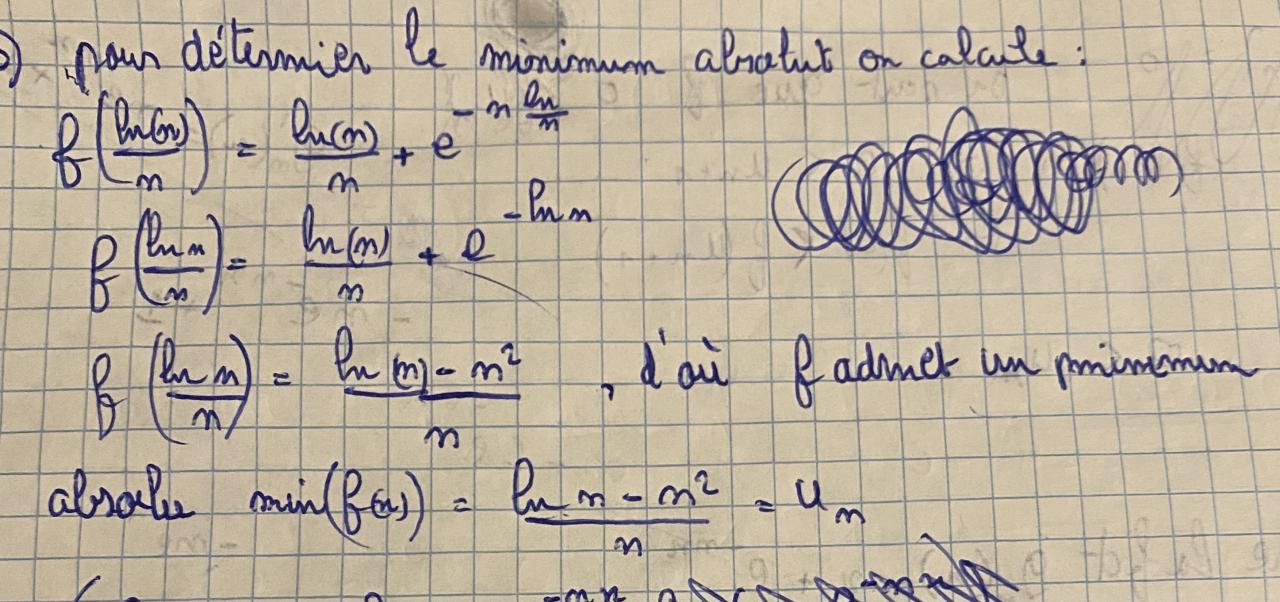 ) pour détermier le minimum absolut on calcule :
f(ln(n)/n) = ln(n)/n + e^(-n ln/n)
f(ln n/n) = ln(n)/n + e^(-ln n)
f(ln n/n) = (ln(n) - n²)/n , d'où f admet un minimum
absolue min(f(x)) = (ln n - n²)/n = u_n